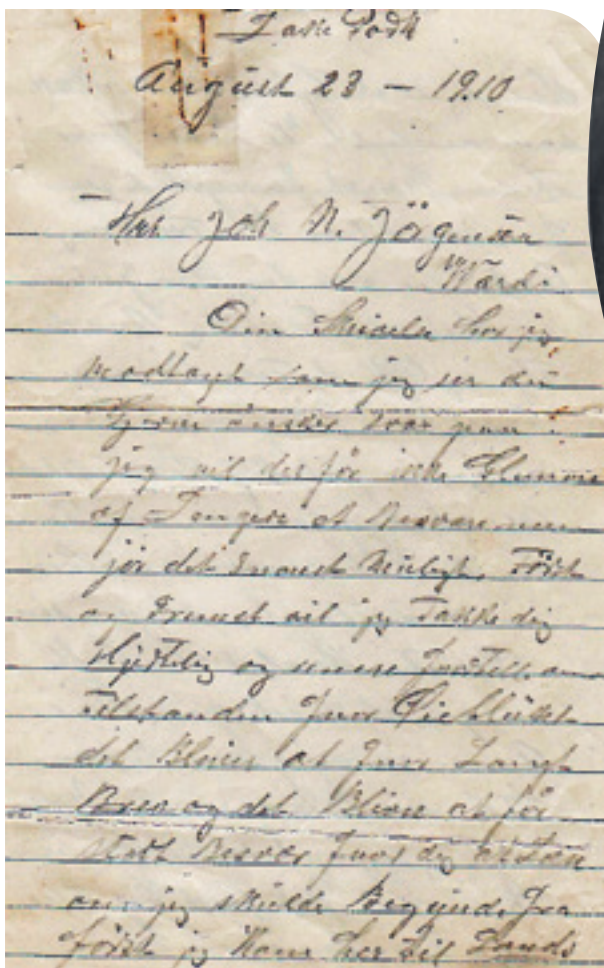 August 23 - 1910
Joh N. Jögensen
Wardö
Din Skrivelse har jeg
modtaget som jeg ser du
Gjerne ønsker svar paa
jeg vil derfor ikke
af Lengere at Besvare men
jör det snarest Muligt. Först
og Fremst vil jeg Takke dig
Hjertelig og
Tilstanden
det Bliver at Langt
Brev og det Bliver at för
stort Besvær dig at Læse
om jeg skulde Begynde fra
först jeg Kom her til Lands